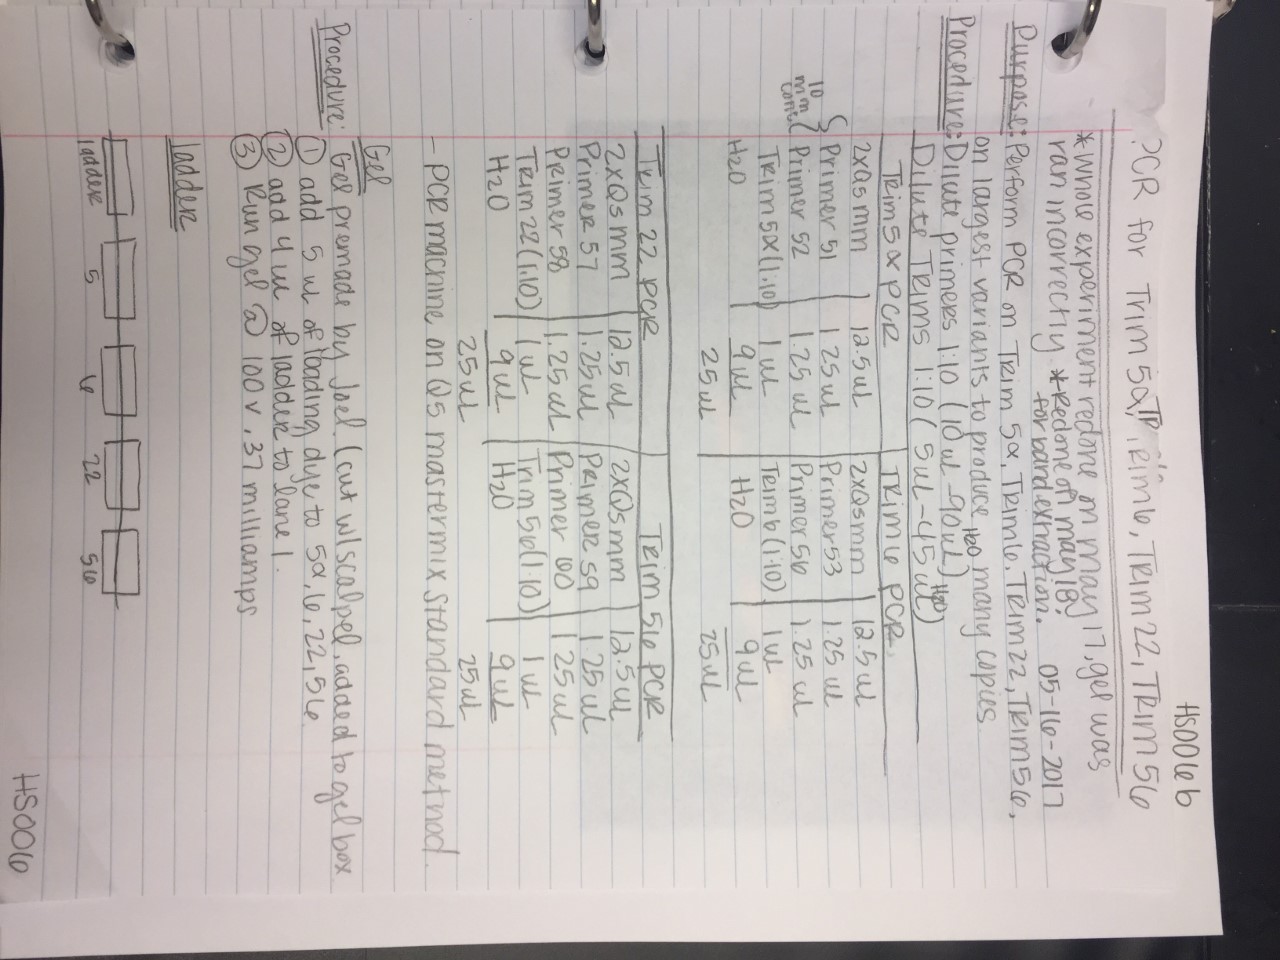 HS006b
PCR for Trim5α, Trim6, Trim22, Trim56
*Whole experiment redone on may 17, gel was
ran incorrectly. *Redone on may 18
for band extraction.
05-16-2017
Purpose: Perform PCR on Trim5α, Trim6, Trim22, Trim56,
on largest variants to produce many copies
Procedure: Dilute primers 1:10 (10ul-90ul) H2O
Dilute Trims 1:10 (5ul-45ul) H2O
Trim5α PCR | Trim6 PCR
2xQ5mm | 12.5ul | 2xQ5mm | 12.5ul
10 mm conc. { Primer 51 | 1.25ul | Primer 53 | 1.25ul
Primer 52 | 1.25ul | Primer 56 | 1.25ul
Trim5α(1:10) | 1ul | Trim6(1:10) | 1ul
H2O | 9ul | H2O | 9ul
25ul 25ul
Trim22 PCR | Trim56 PCR
2xQ5mm | 12.5ul | 2xQ5mm | 12.5ul
Primer 57 | 1.25ul | Primer 59 | 1.25ul
Primer 58 | 1.25ul | Primer 60 | 1.25ul
Trim22(1:10) | 1ul | Trim56(1:10) | 1ul
H2O | 9ul | H2O | 9ul
25ul 25ul
- PCR machine on Q5 mastermix standard method.
Gel
Procedure: Gel premade by Joel (cut w/scalpel, added to gel box
① add 5 ul of loading dye to 5α, 6, 22, 56.
② add 4 ul of ladder to lane 1.
③ Run gel @ 100v, 37 milliamps
ladder
ladder 5 6 22 56
HS006